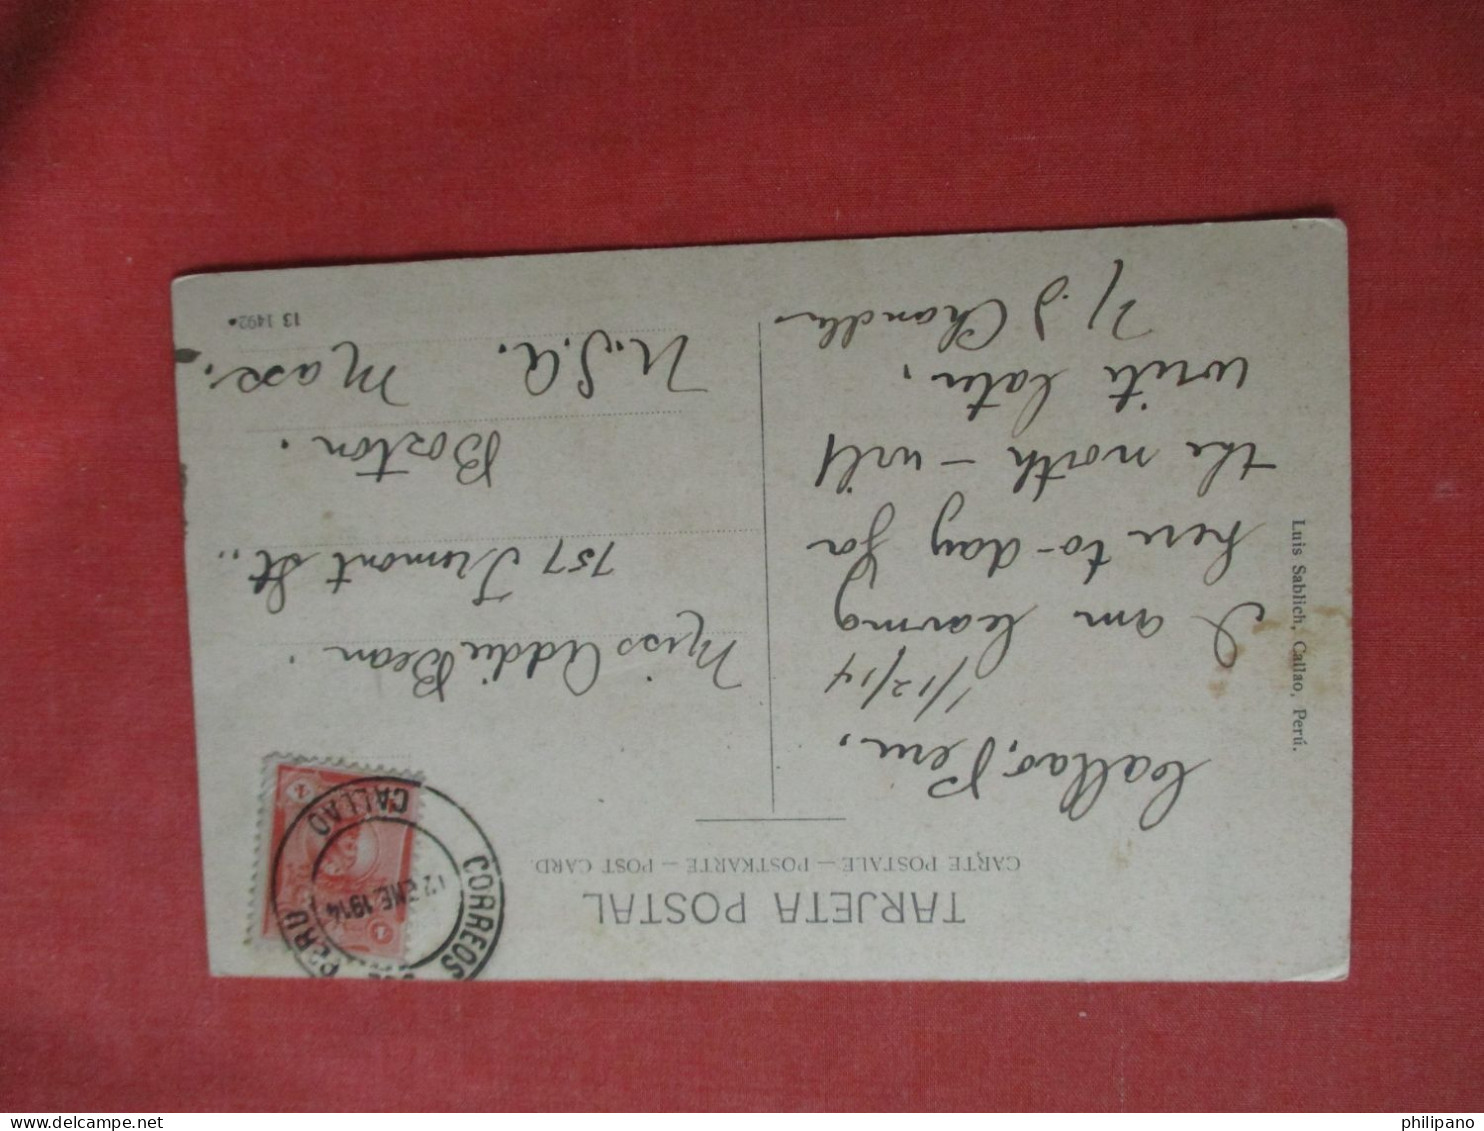 TARJETA POSTAL
CARTE POSTALE — POSTKARTE — POST CARD.
Callao, Peru,
1/12/14
I am leaving
here to-day for
the north — will
write later.
Chandler
Miss Addie Bean.
757 Tremont St.,
Boston.
U.S.A. Mass.
13 1492
Luis Sablich, Callao, Perú.
CORREOS
PERU
12 ENE. 1914
CALLAO
1
1
philipano